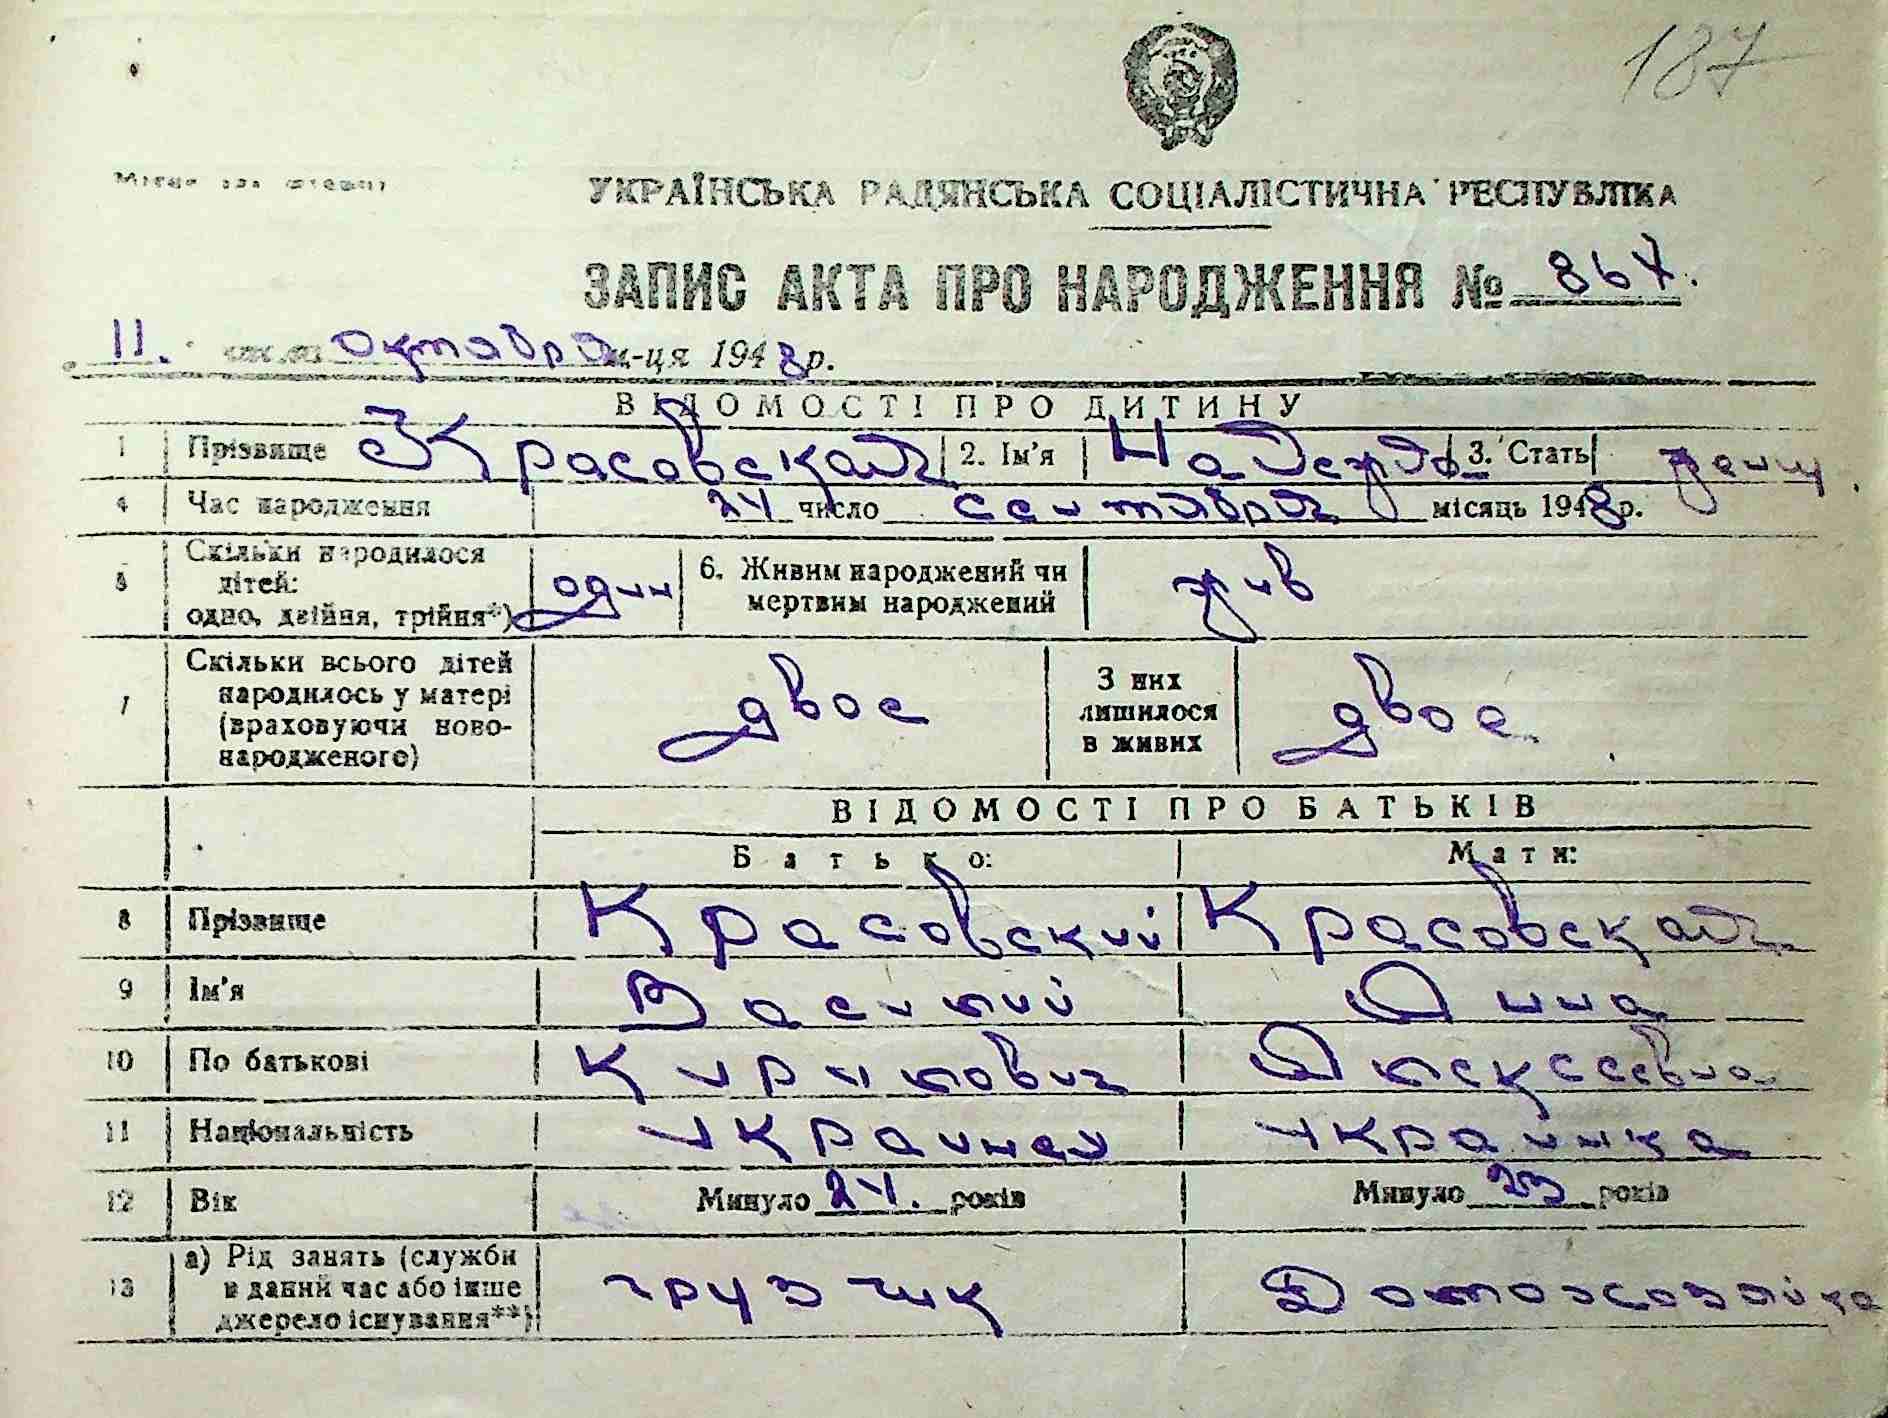 187
Місце для штампу
УКРАЇНСЬКА РАДЯНСЬКА СОЦІАЛІСТИЧНА РЕСПУБЛІКА
ЗАПИС АКТА ПРО НАРОДЖЕННЯ № 867.
11. числа октября м-ця 1948 р.
ВІДОМОСТІ ПРО ДИТИНУ
1 Прізвище Красовская 2. Ім'я Надежда 3. Стать женщ.
4 Час народження 24 число сентября місяць 1948 р.
5 Скільки народилося
дітей:
одно, двійня, трійня*) один 6. Живим народжений чи
мертвим народжений жив
7 Скільки всього дітей
народилось у матері
(враховуючи ново-
народженого) двое З них
лишилося
в живих двое
ВІДОМОСТІ ПРО БАТЬКІВ
Батько: Мати:
8 Прізвище Красовский Красовская
9 Ім'я Василий Анна
10 По батькові Кирилович Алексеевна
11 Національність украинец украинка
12 Вік Минуло 24. років Минуло 23 років
13 а) Рід занять (служби
в даний час або інше
джерело існування**) грузчик Домохозяйка